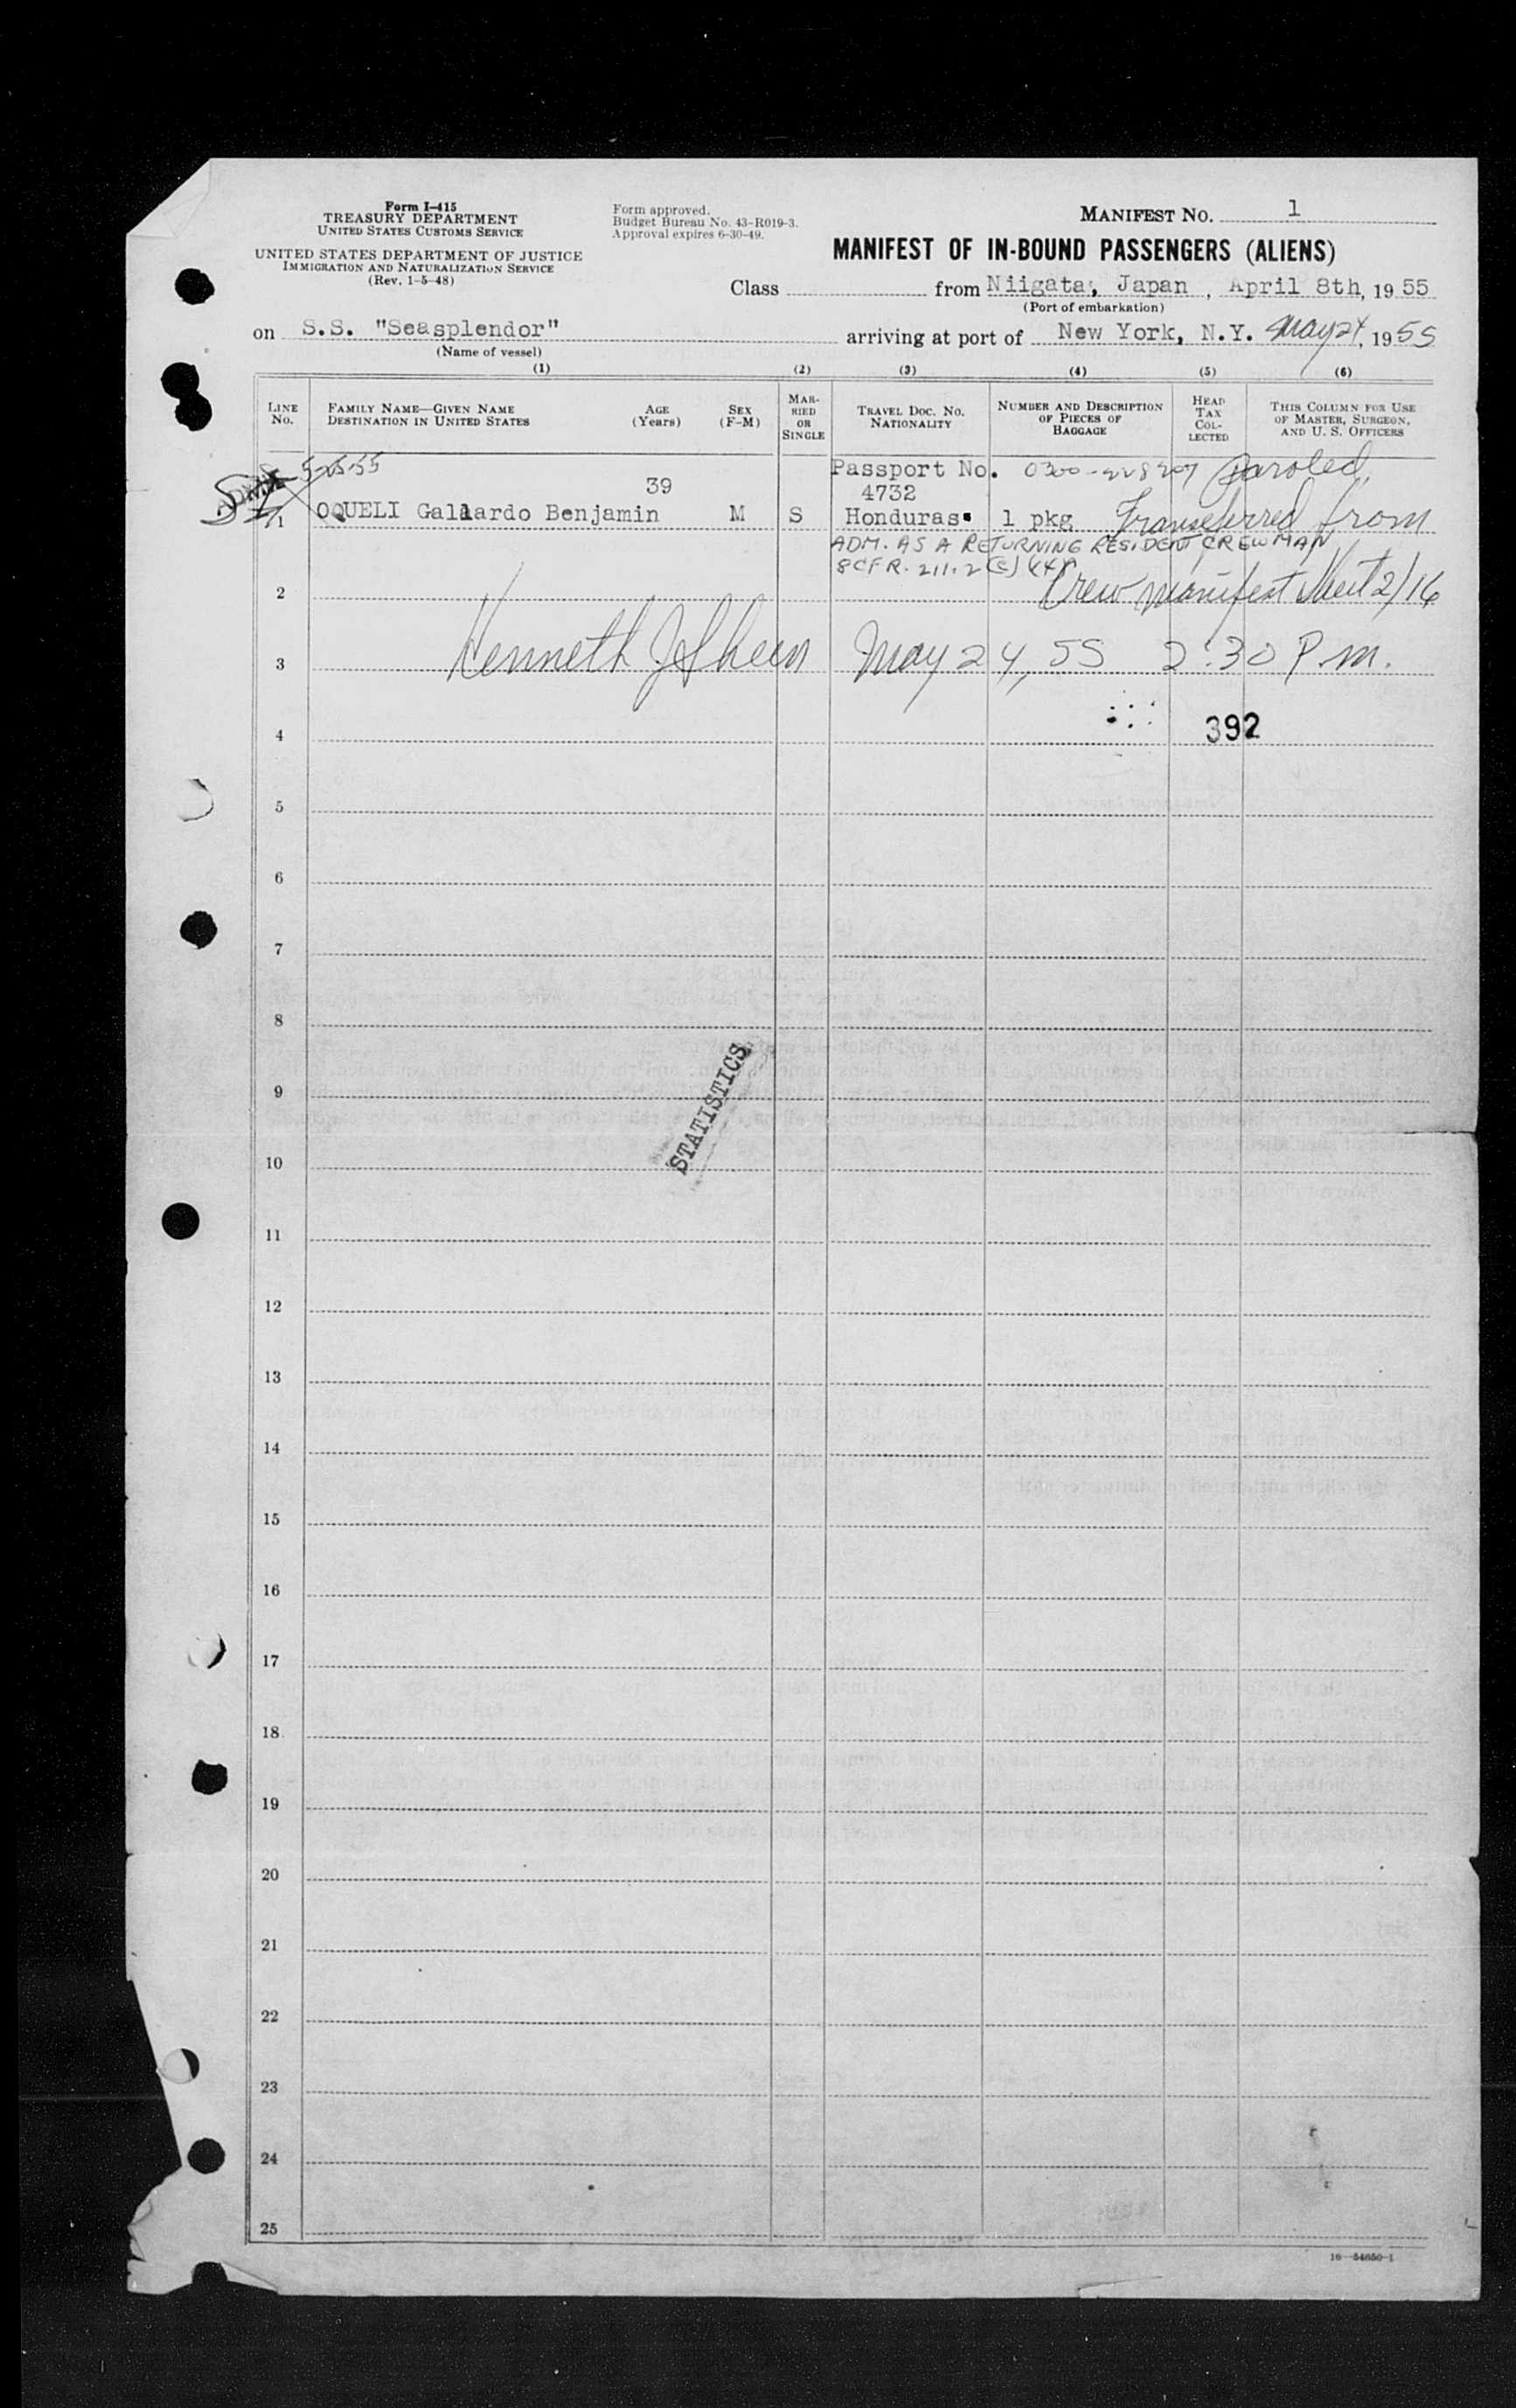 Form I-415
TREASURY DEPARTMENT
UNITED STATES CUSTOMS SERVICE
UNITED STATES DEPARTMENT OF JUSTICE
IMMIGRATION AND NATURALIZATION SERVICE
(Rev. 1-5-48)
Form approved.
Budget Bureau No. 43-R019-3.
Approval expires 6-30-49.
MANIFEST NO. 1
MANIFEST OF IN-BOUND PASSENGERS (ALIENS)
Class from Niigata, Japan, April 8th, 1955
(Port of embarkation)
on S.S. "Seasplendor" arriving at port of New York, N.Y. May 24, 1955
(Name of vessel)
(1) (2) (3) (4) (5) (6)
LINE No.
FAMILY NAME—GIVEN NAME
DESTINATION IN UNITED STATES
AGE (Years)
SEX (F-M)
MARRIED OR SINGLE
TRAVEL DOC. NO.
NATIONALITY
NUMBER AND DESCRIPTION OF PIECES OF BAGGAGE
HEAD TAX COLLECTED
THIS COLUMN FOR USE OF MASTER, SURGEON, AND U. S. OFFICERS
5-25-55 Passport No. Paroled
39 4732
1 OQUELI Gallardo Benjamin M S Honduras 1 pkg Transferred from
ADM. AS A RETURNING RESIDENT CREWMAN
8 CFR. 211.2
2 Crew manifest sheet 2/16
3 Kenneth May 24, 55 2:30 P.m.
4 392
5
6
7
8
9
STATISTICS
10
11
12
13
14
15
16
17
18
19
20
21
22
23
24
25
16—54650-1